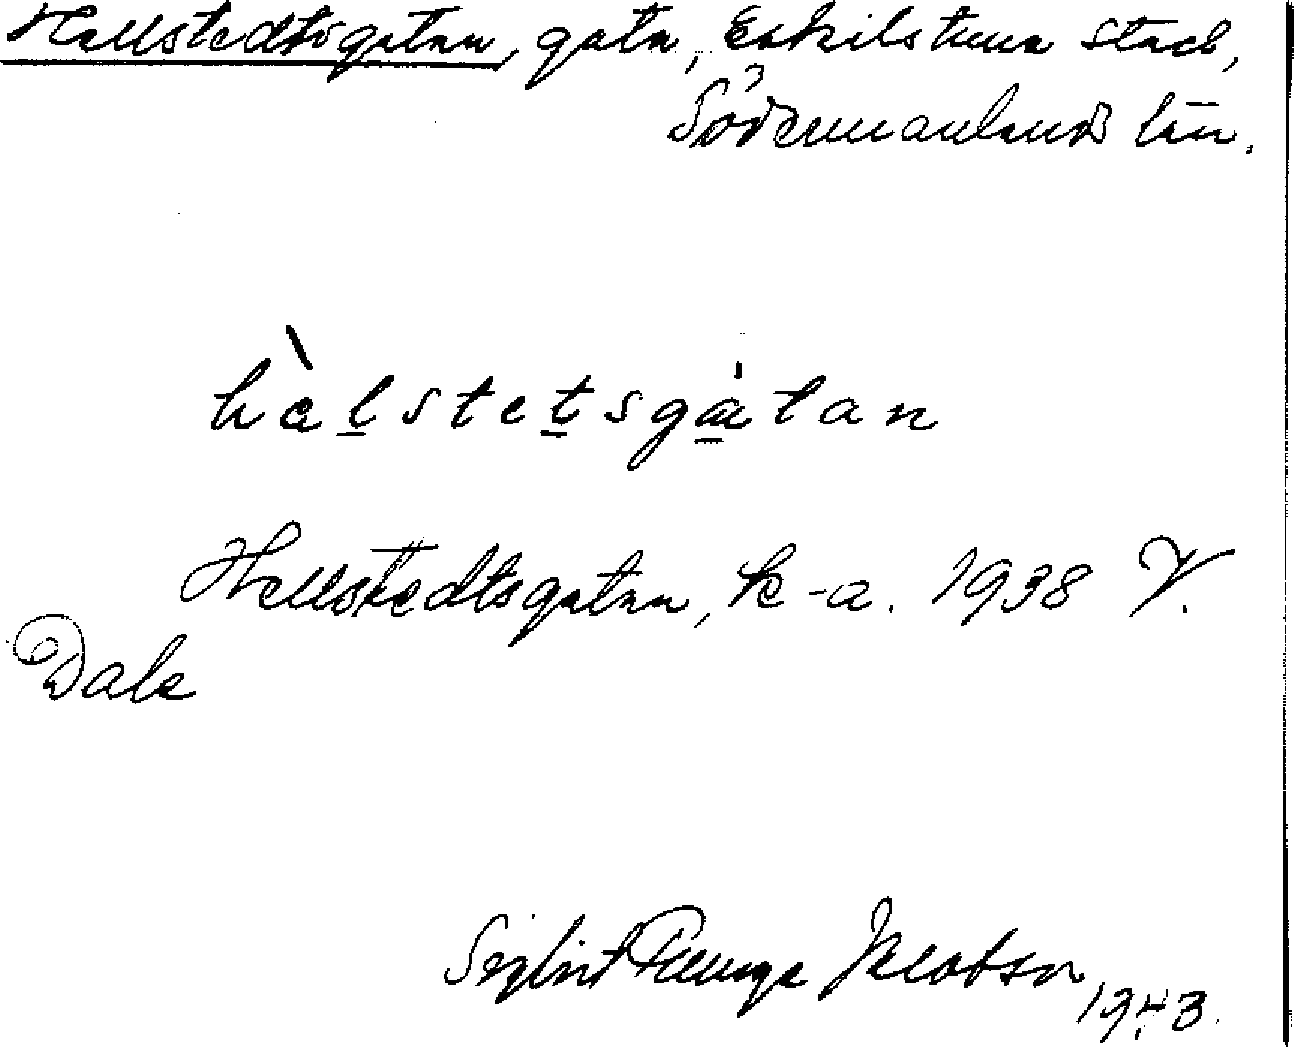 Hellstedtsgatan, gata, Eskilstuna stad,
Södermanlands län.
hèl̲stet̲sgȧ̲tan
Hellstedtsgatan, k-a. 1938 V.
Dale
Siglint Plenge Jacobson
1943.